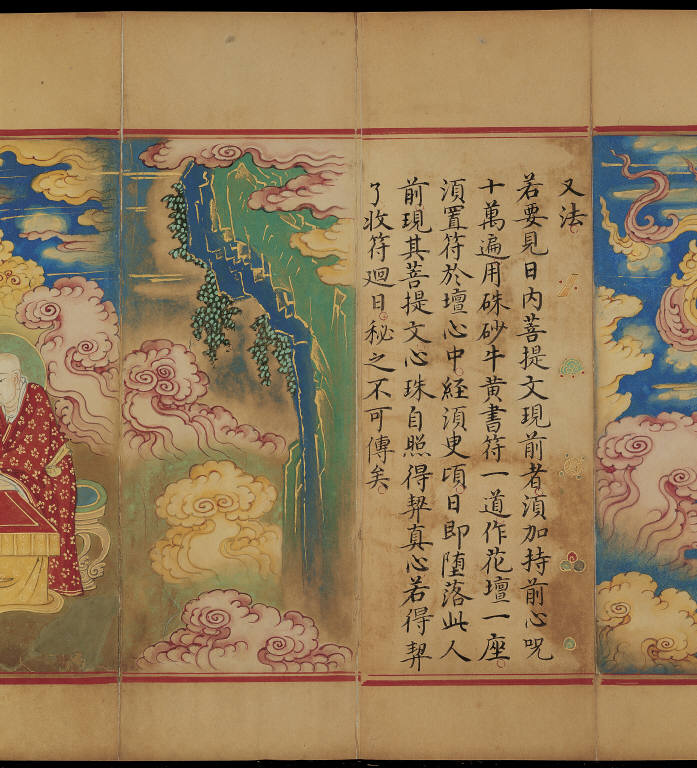 又法
若要見日内菩提文現前者湏加持前心呪
十萬遍用硃砂牛黄書符一道作花壇一座
湏置符於壇心中經湏更頃日即墮落此人
前現其菩提文心珠自照得契真心若得契
了收符迴日秘之不可傳矣